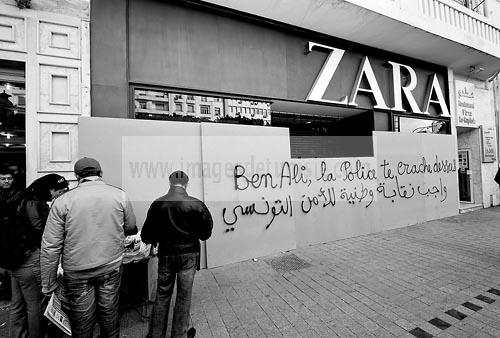 ZARA
Ben Ali, la Police te crache dessus
واجب نقابة وطنية للأمن التونسي
www.imagesdetunisie.com